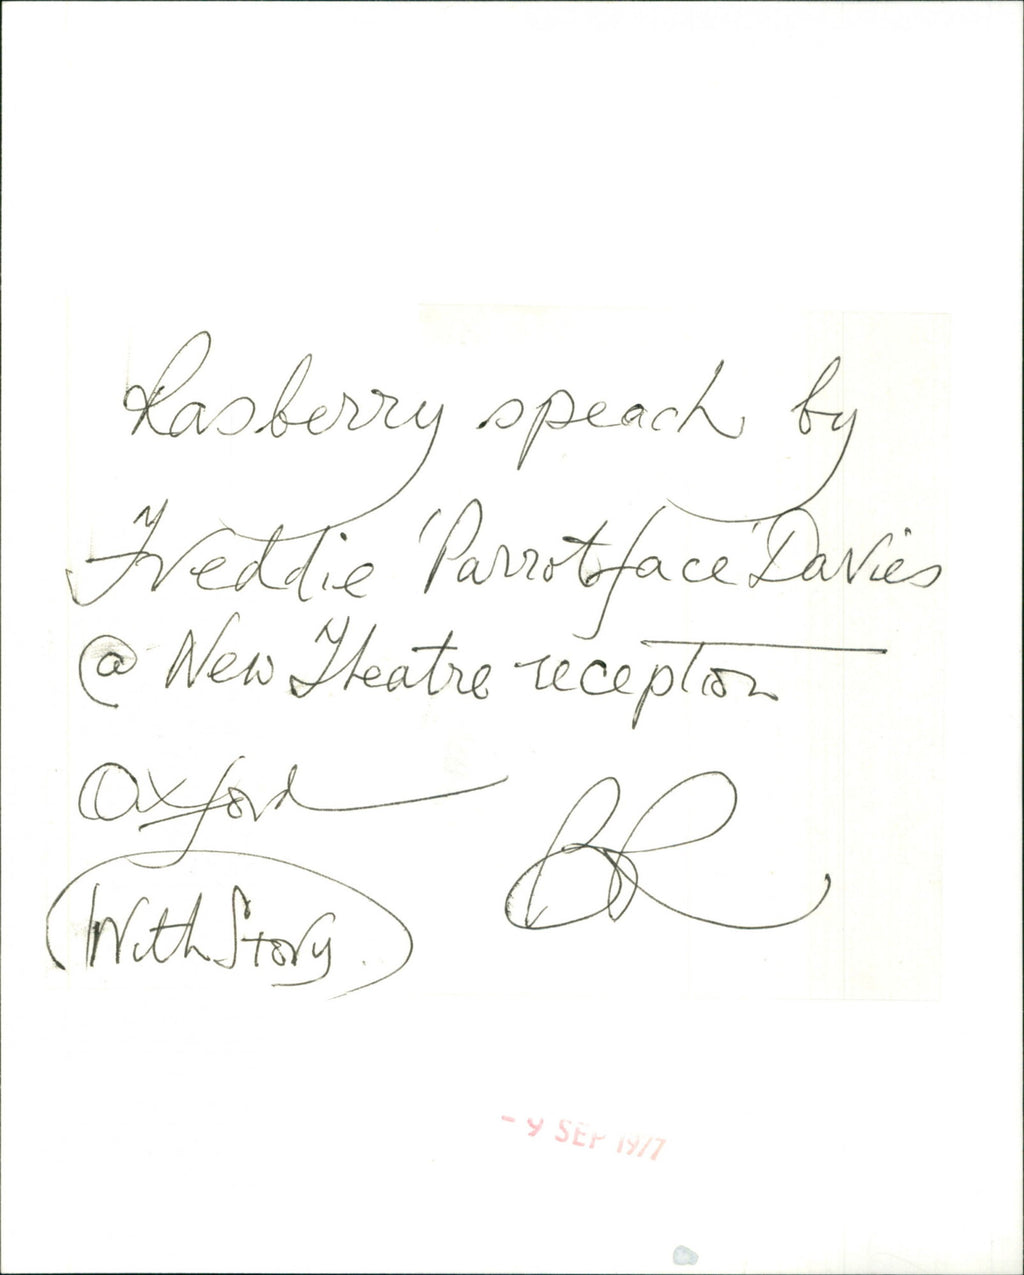 Rasberry speach by
Freddie 'Parrotface' Davies
@ New Theatre reception
Oxford
BR
With Story.
- 9 SEP 1977